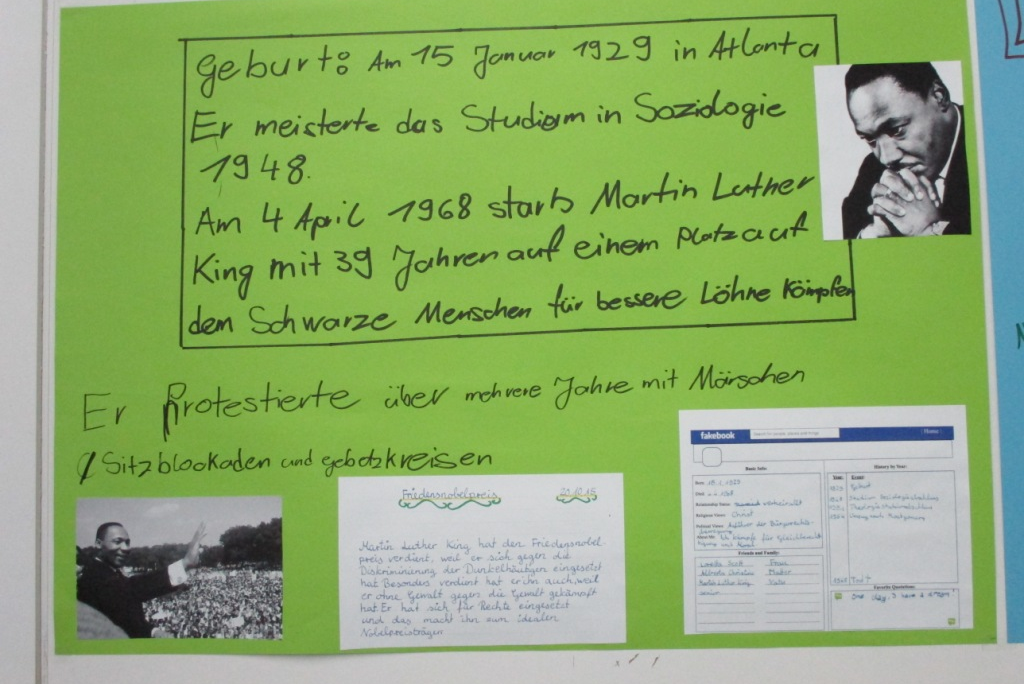 Geburt: Am 15 Januar 1929 in Atlanta
Er meisterte das Studiom in Soziologie
1948.
Am 4 April 1968 starb Martin Luther
King mit 39 Jahren auf einem Platz auf
dem Schwarze Menschen für bessere Löhne kömpfen
Er Protestierte über mehrere Jahre mit Märschen
Sitzblookaden und gebetzkreisen
Friedensnobelpreis 20.10.15
Martin Luther King hat den Friedensnobel-
preis verdünt, weil er sich gegen die
Diskriminärung der Dunkelhäutigen eingesetzt
hat. Besonders verdünt hat er ihn auch, weil
er ohne Gewalt gegen die Gewalt gekämpft
hat. Er hat sich für Rechte eingesetzt
und das macht ihn zum idealen
Nobelpreisträgen
fakebook
Home
Basic Info:
Born:
Died:
Relationship Status:
Religious Views: Christ
Political Views: Anführer der Bürgerrechts-
About Me: Ich kämpfe für
Friends and Family:
Coretta Scott Frau
Alberta Christine Mutter
Martin Luther King Vater
senior
History by Year:
Year: Event:
1929 Geburt
1948 Studium
1968 Tod †
Favorite Quotations:
One day, I have a dream!